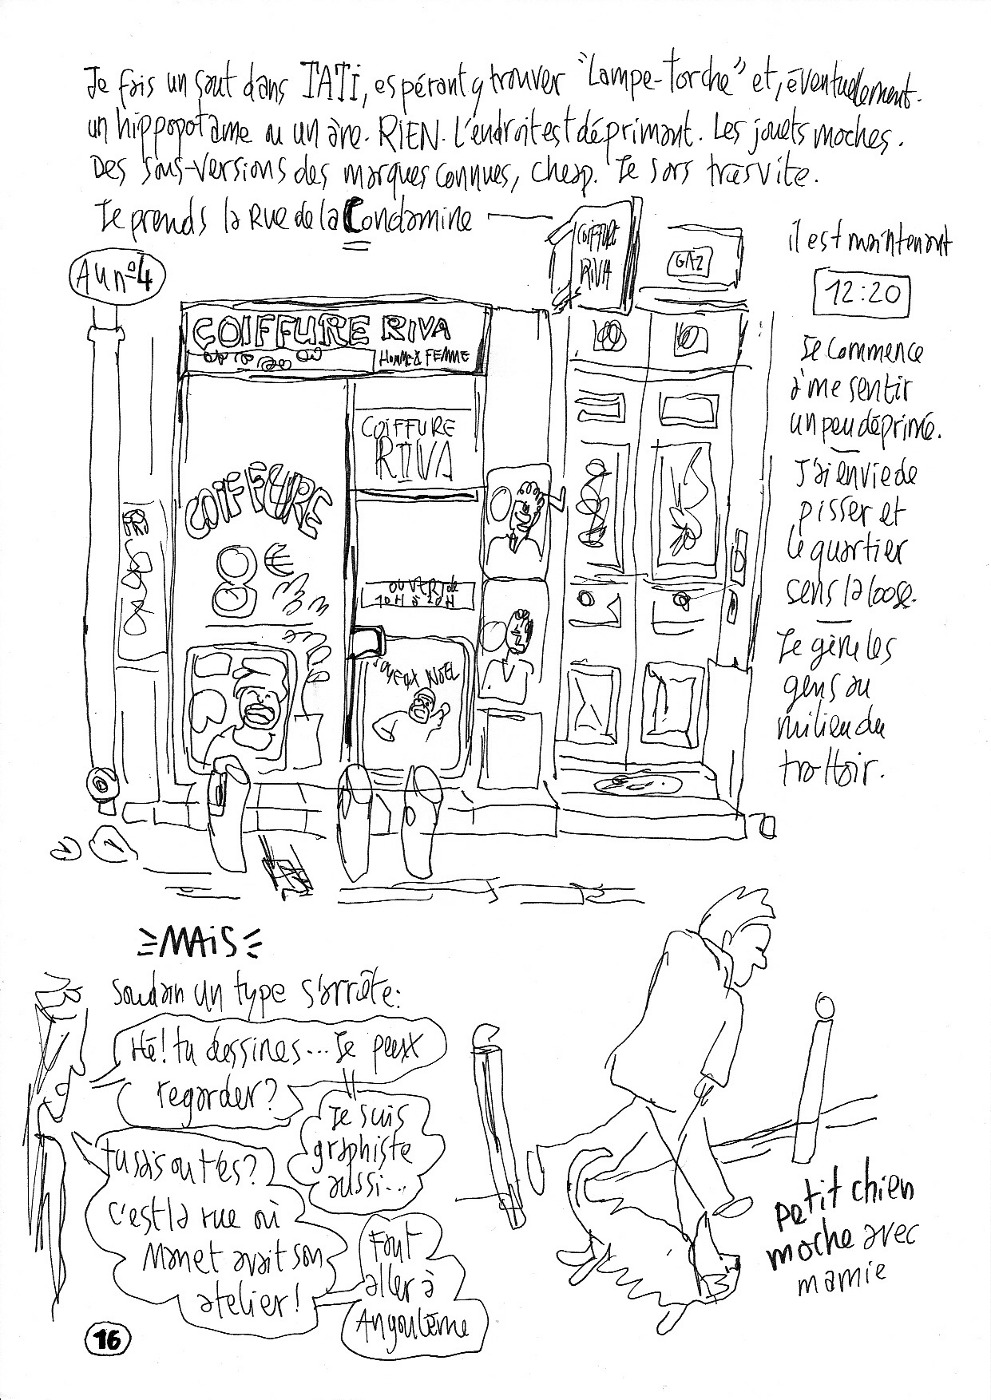 Je fais un saut dans TATI, espérant y trouver "Lampe-Torche" et, éventuellement.
un hippopotame ou un âne. RIEN. L'endroit est déprimant. Les jouets moches.
Des sous-versions des marques connues, cheap. Je sors très vite.
Je prends la Rue de la Condamine
COIFFURE
RIVA
GAZ
il est maintenant
12:20
Au n°4
COIFFURE RIVA
HOMME & FEMME
COIFFURE
RIVA
COIFFURE
8 €
OUVERT de
10H à 20H
JOYEUX NOËL
Je commence
à me sentir
un peu déprimé.
J'ai envie de
pisser et
le quartier
sens la loose.
Je gêne les
gens au
milieu du
trottoir.
MAIS
Soudain un type s'arrête:
Hé! tu dessines... Je peux
regarder?
Je suis
graphiste
aussi...
tu sais où t'es?
C'est la rue où
Manet avait son
atelier!
Faut
aller à
Angoulême
petit chien
moche avec
mamie
16